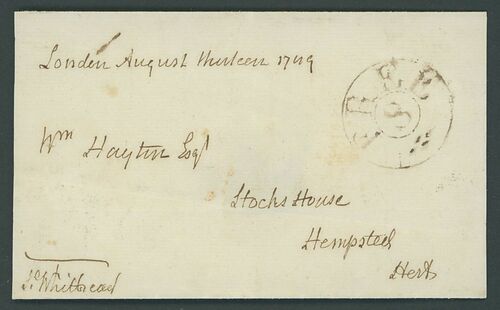 London August thirteen 1789
FREE
S
Wm Hayton Esqr
Stocks House
Hempsted
Herts
S. Whitbread